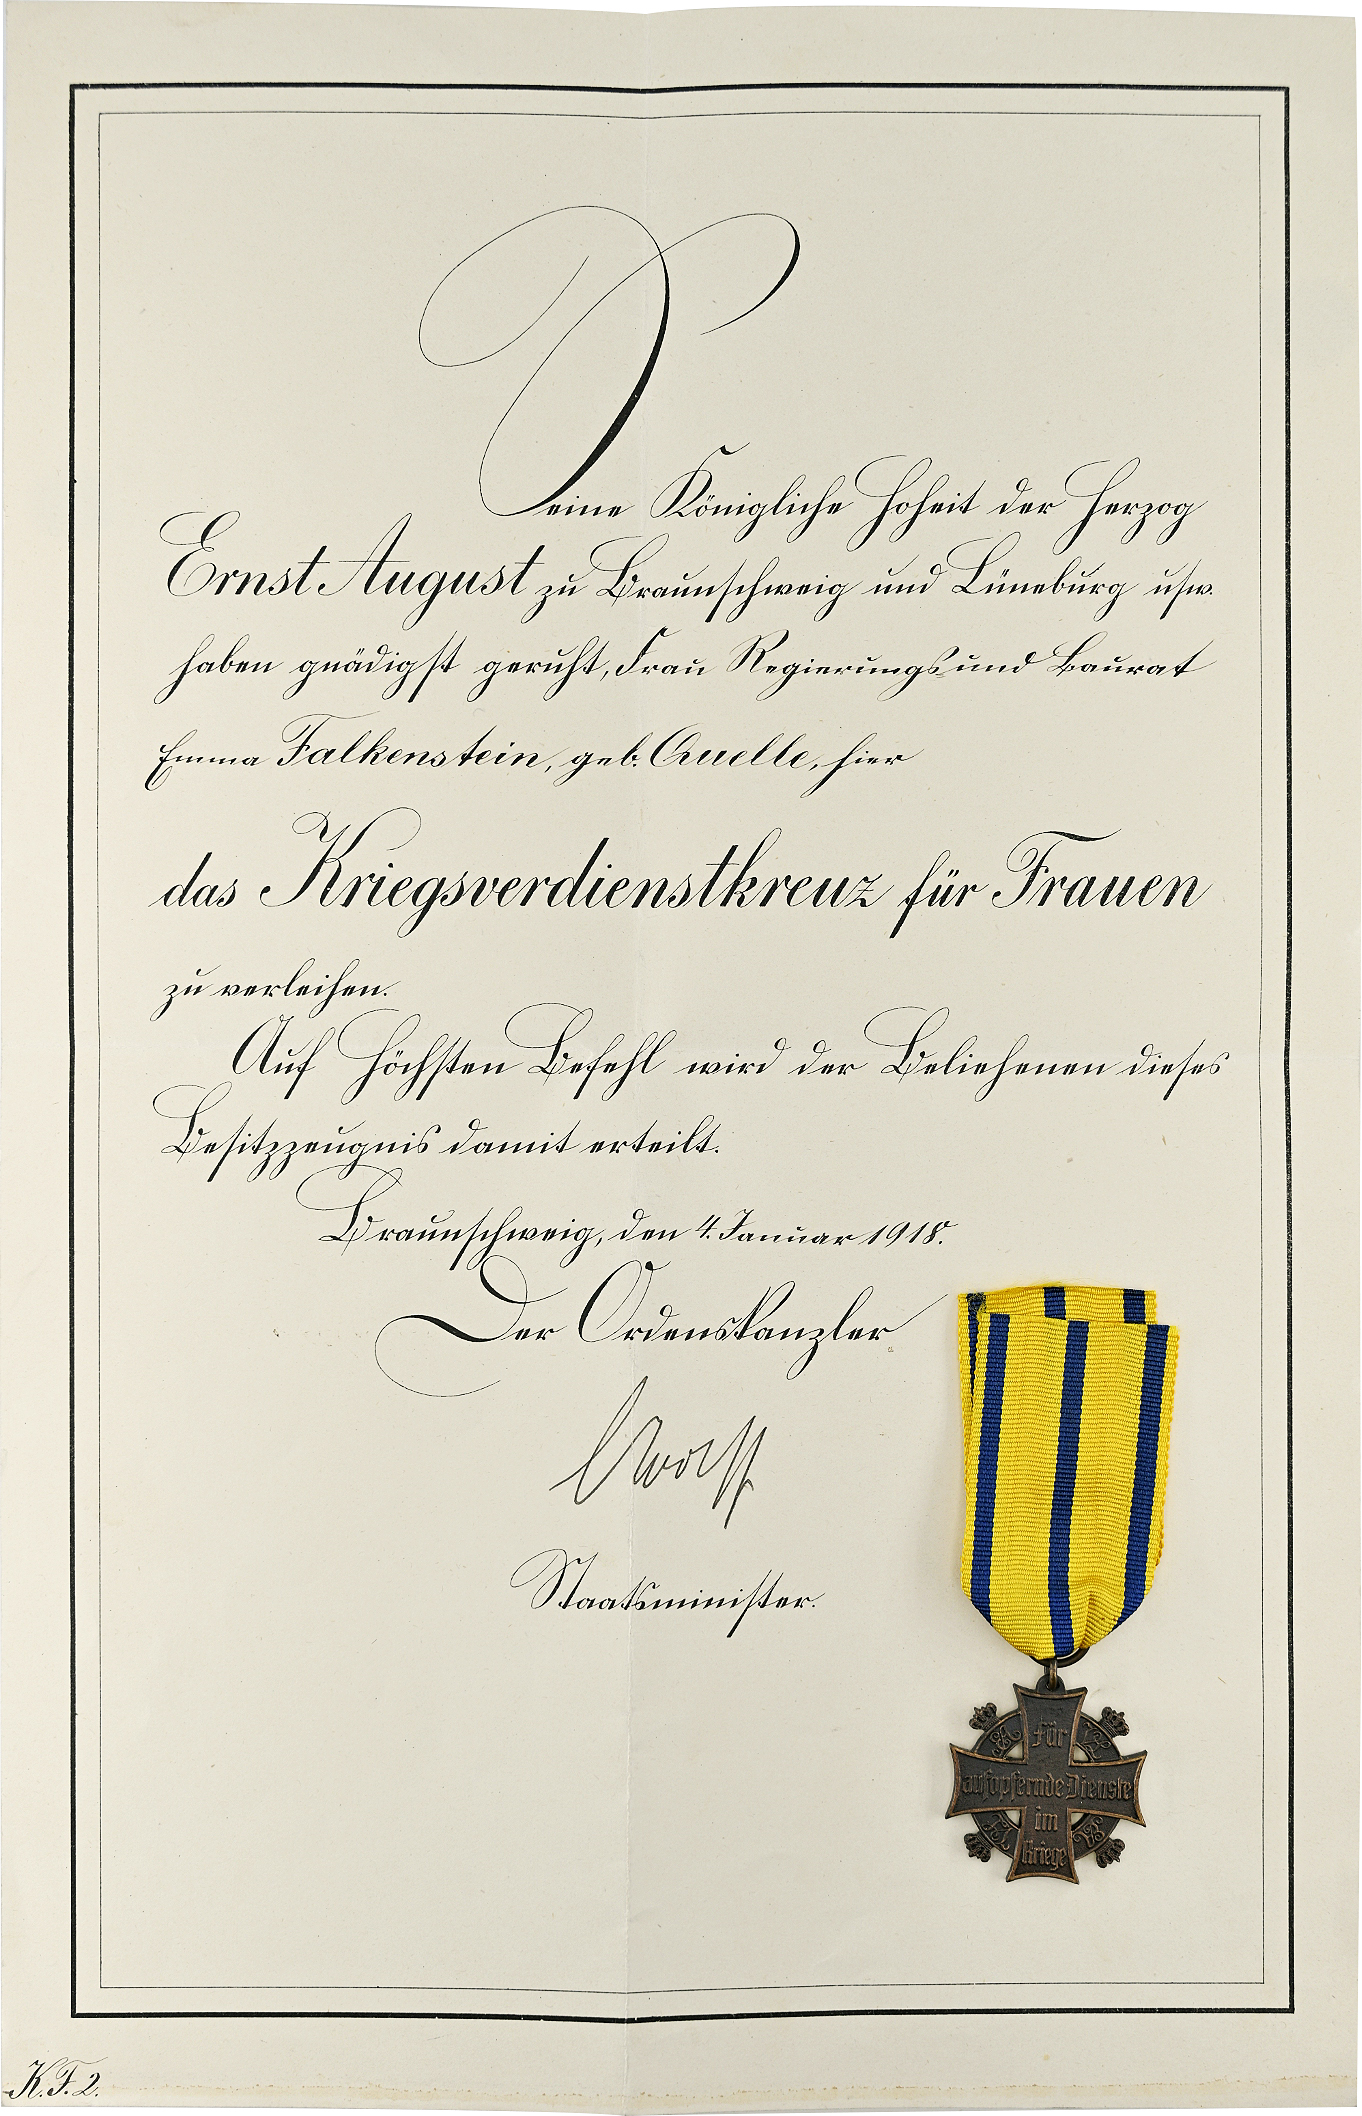 Seine Königliche Hoheit der Herzog
Ernst August zu Braunschweig und Lüneburg usw.
haben gnädigst geruht, Frau Regierungs- und Baurat
Emma Falkenstein, geb. Quelle, hier
das Kriegsverdienstkreuz für Frauen
zu verleihen.
Auf Höchsten Befehl wird der Beliehenen dieses
Besitzzeugnis damit erteilt.
Braunschweig, den 4. Januar 1918.
Der Ordenskanzler
Staatsminister.
Für
aufopfernde Dienste
im
Kriege
K.F.2.